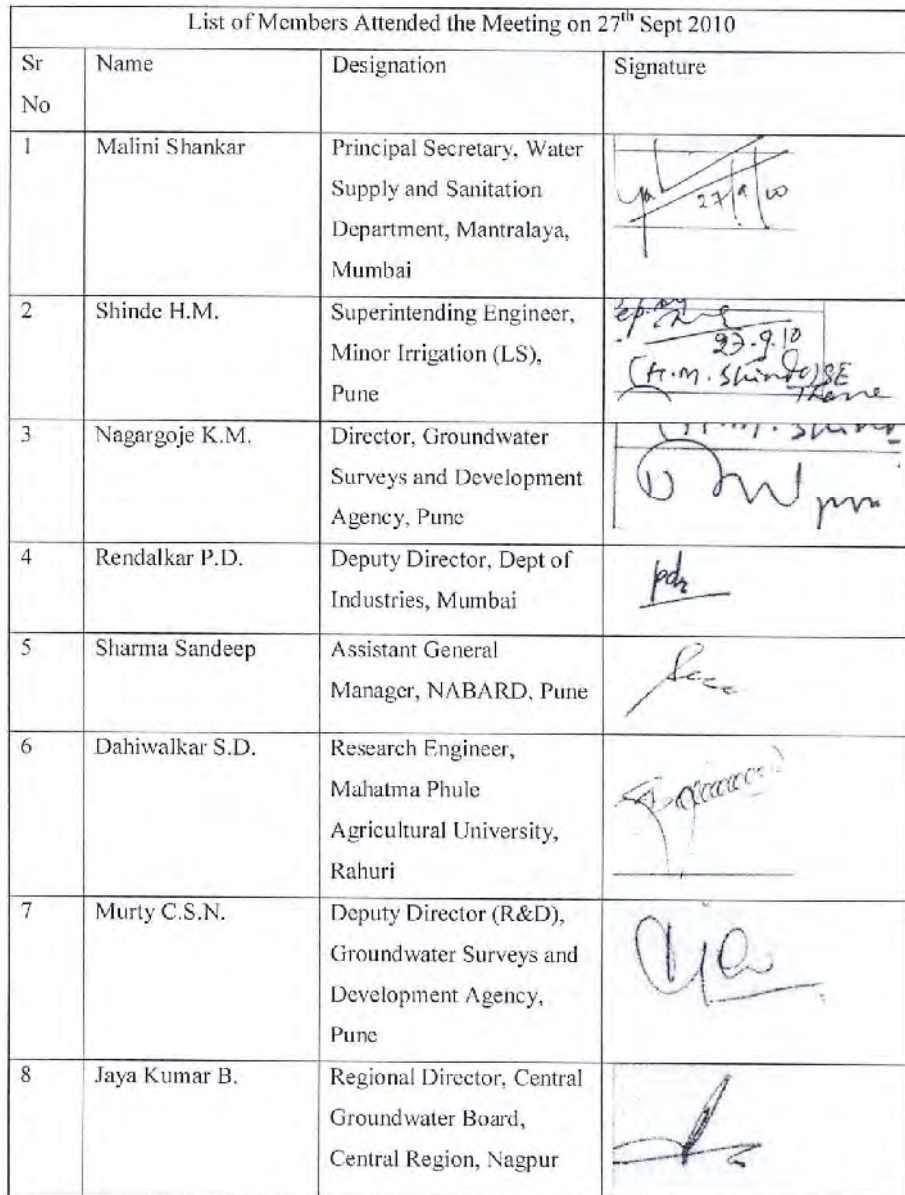 List of Members Attended the Meeting on 27th Sept 2010
Sr No Name Designation Signature
1 Malini Shankar Principal Secretary, Water
Supply and Sanitation
Department, Mantralaya,
Mumbai
27/9/10
2 Shinde H.M. Superintending Engineer,
Minor Irrigation (LS),
Pune
27.9.10
(H.M. Shinde) SE
Thane
3 Nagargoje K.M. Director, Groundwater
Surveys and Development
Agency, Pune
4 Rendalkar P.D. Deputy Director, Dept of
Industries, Mumbai
pdr
5 Sharma Sandeep Assistant General
Manager, NABARD, Pune
6 Dahiwalkar S.D. Research Engineer,
Mahatma Phule
Agricultural University,
Rahuri
7 Murty C.S.N. Deputy Director (R&D),
Groundwater Surveys and
Development Agency,
Pune
8 Jaya Kumar B. Regional Director, Central
Groundwater Board,
Central Region, Nagpur